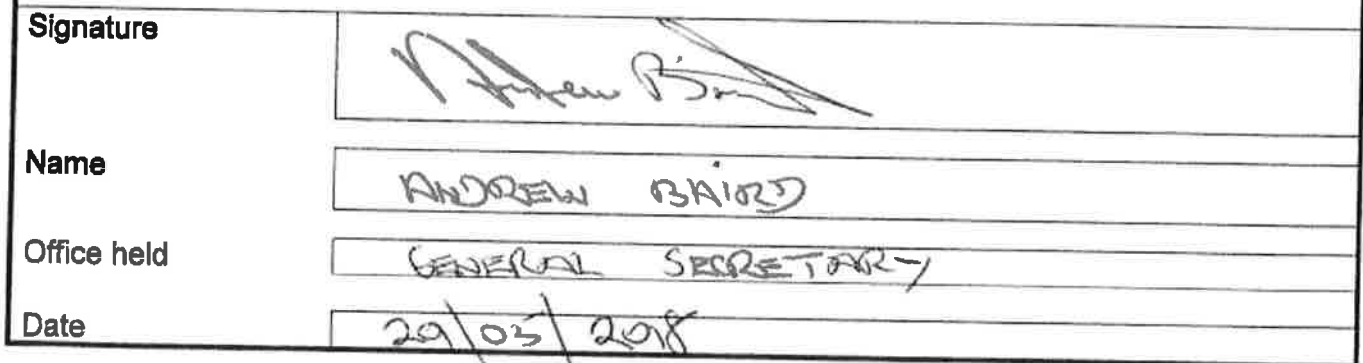 Signature Andrew Baird
Name ANDREW BAIRD
Office held GENERAL SECRETARY
Date 29/03/2018